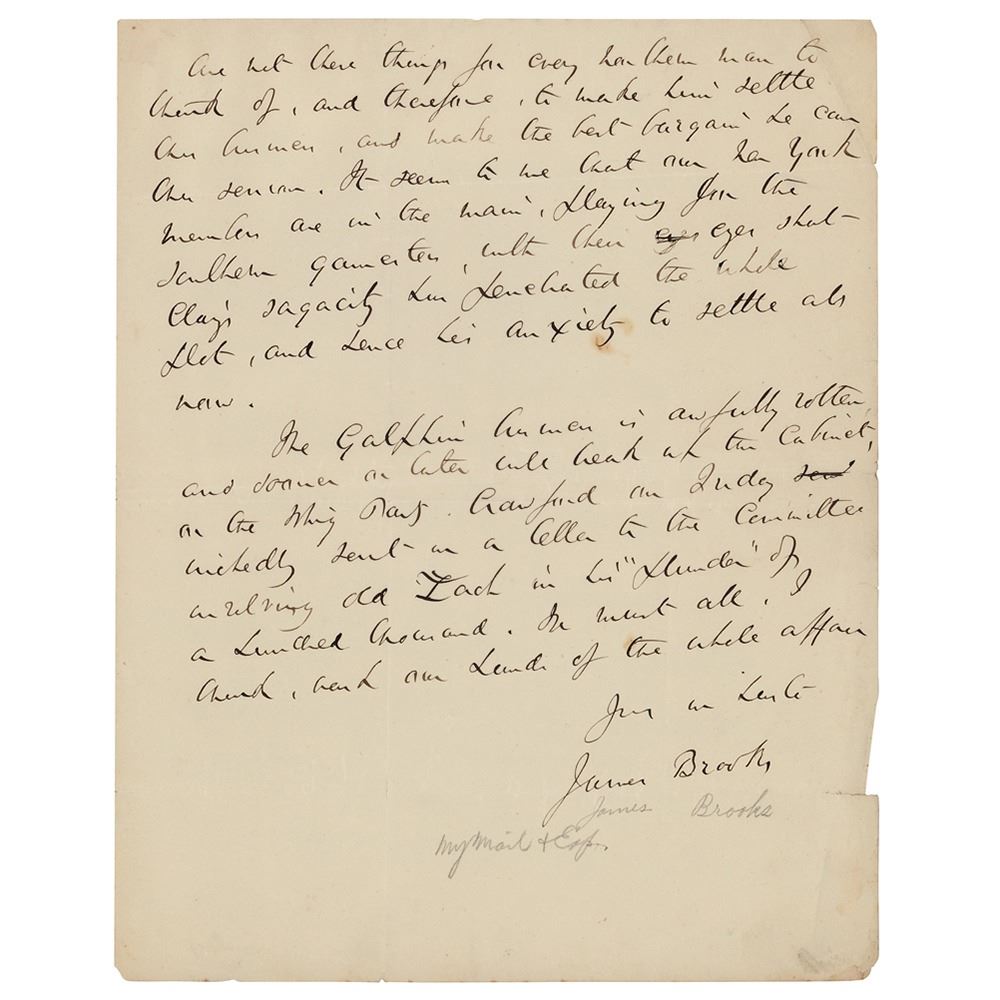 Are not these things for every Northern man to
think of, and therefore, to make him settle
this business, and make the best bargain he can
this session. It seems to me that our New York
members are in the main, playing for the
Southern gamesters, with their <s>eyes</s> eyes shut
Clay's sagacity has penetrated the whole
plot, and hence his anxiety to settle all
now.
The Galphin business is awfully rotten,
and sooner or later will break up the Cabinet,
or the Whig Party. Crawford on Friday <s>sent</s>
wickedly sent in a letter to the Committee
involving old Zach in his "plunder" of
a hundred thousand. We must all, I
think, wash our hands of the whole affair
Yours in haste
James Brooks
James Brooks
NY Mail & Exp.